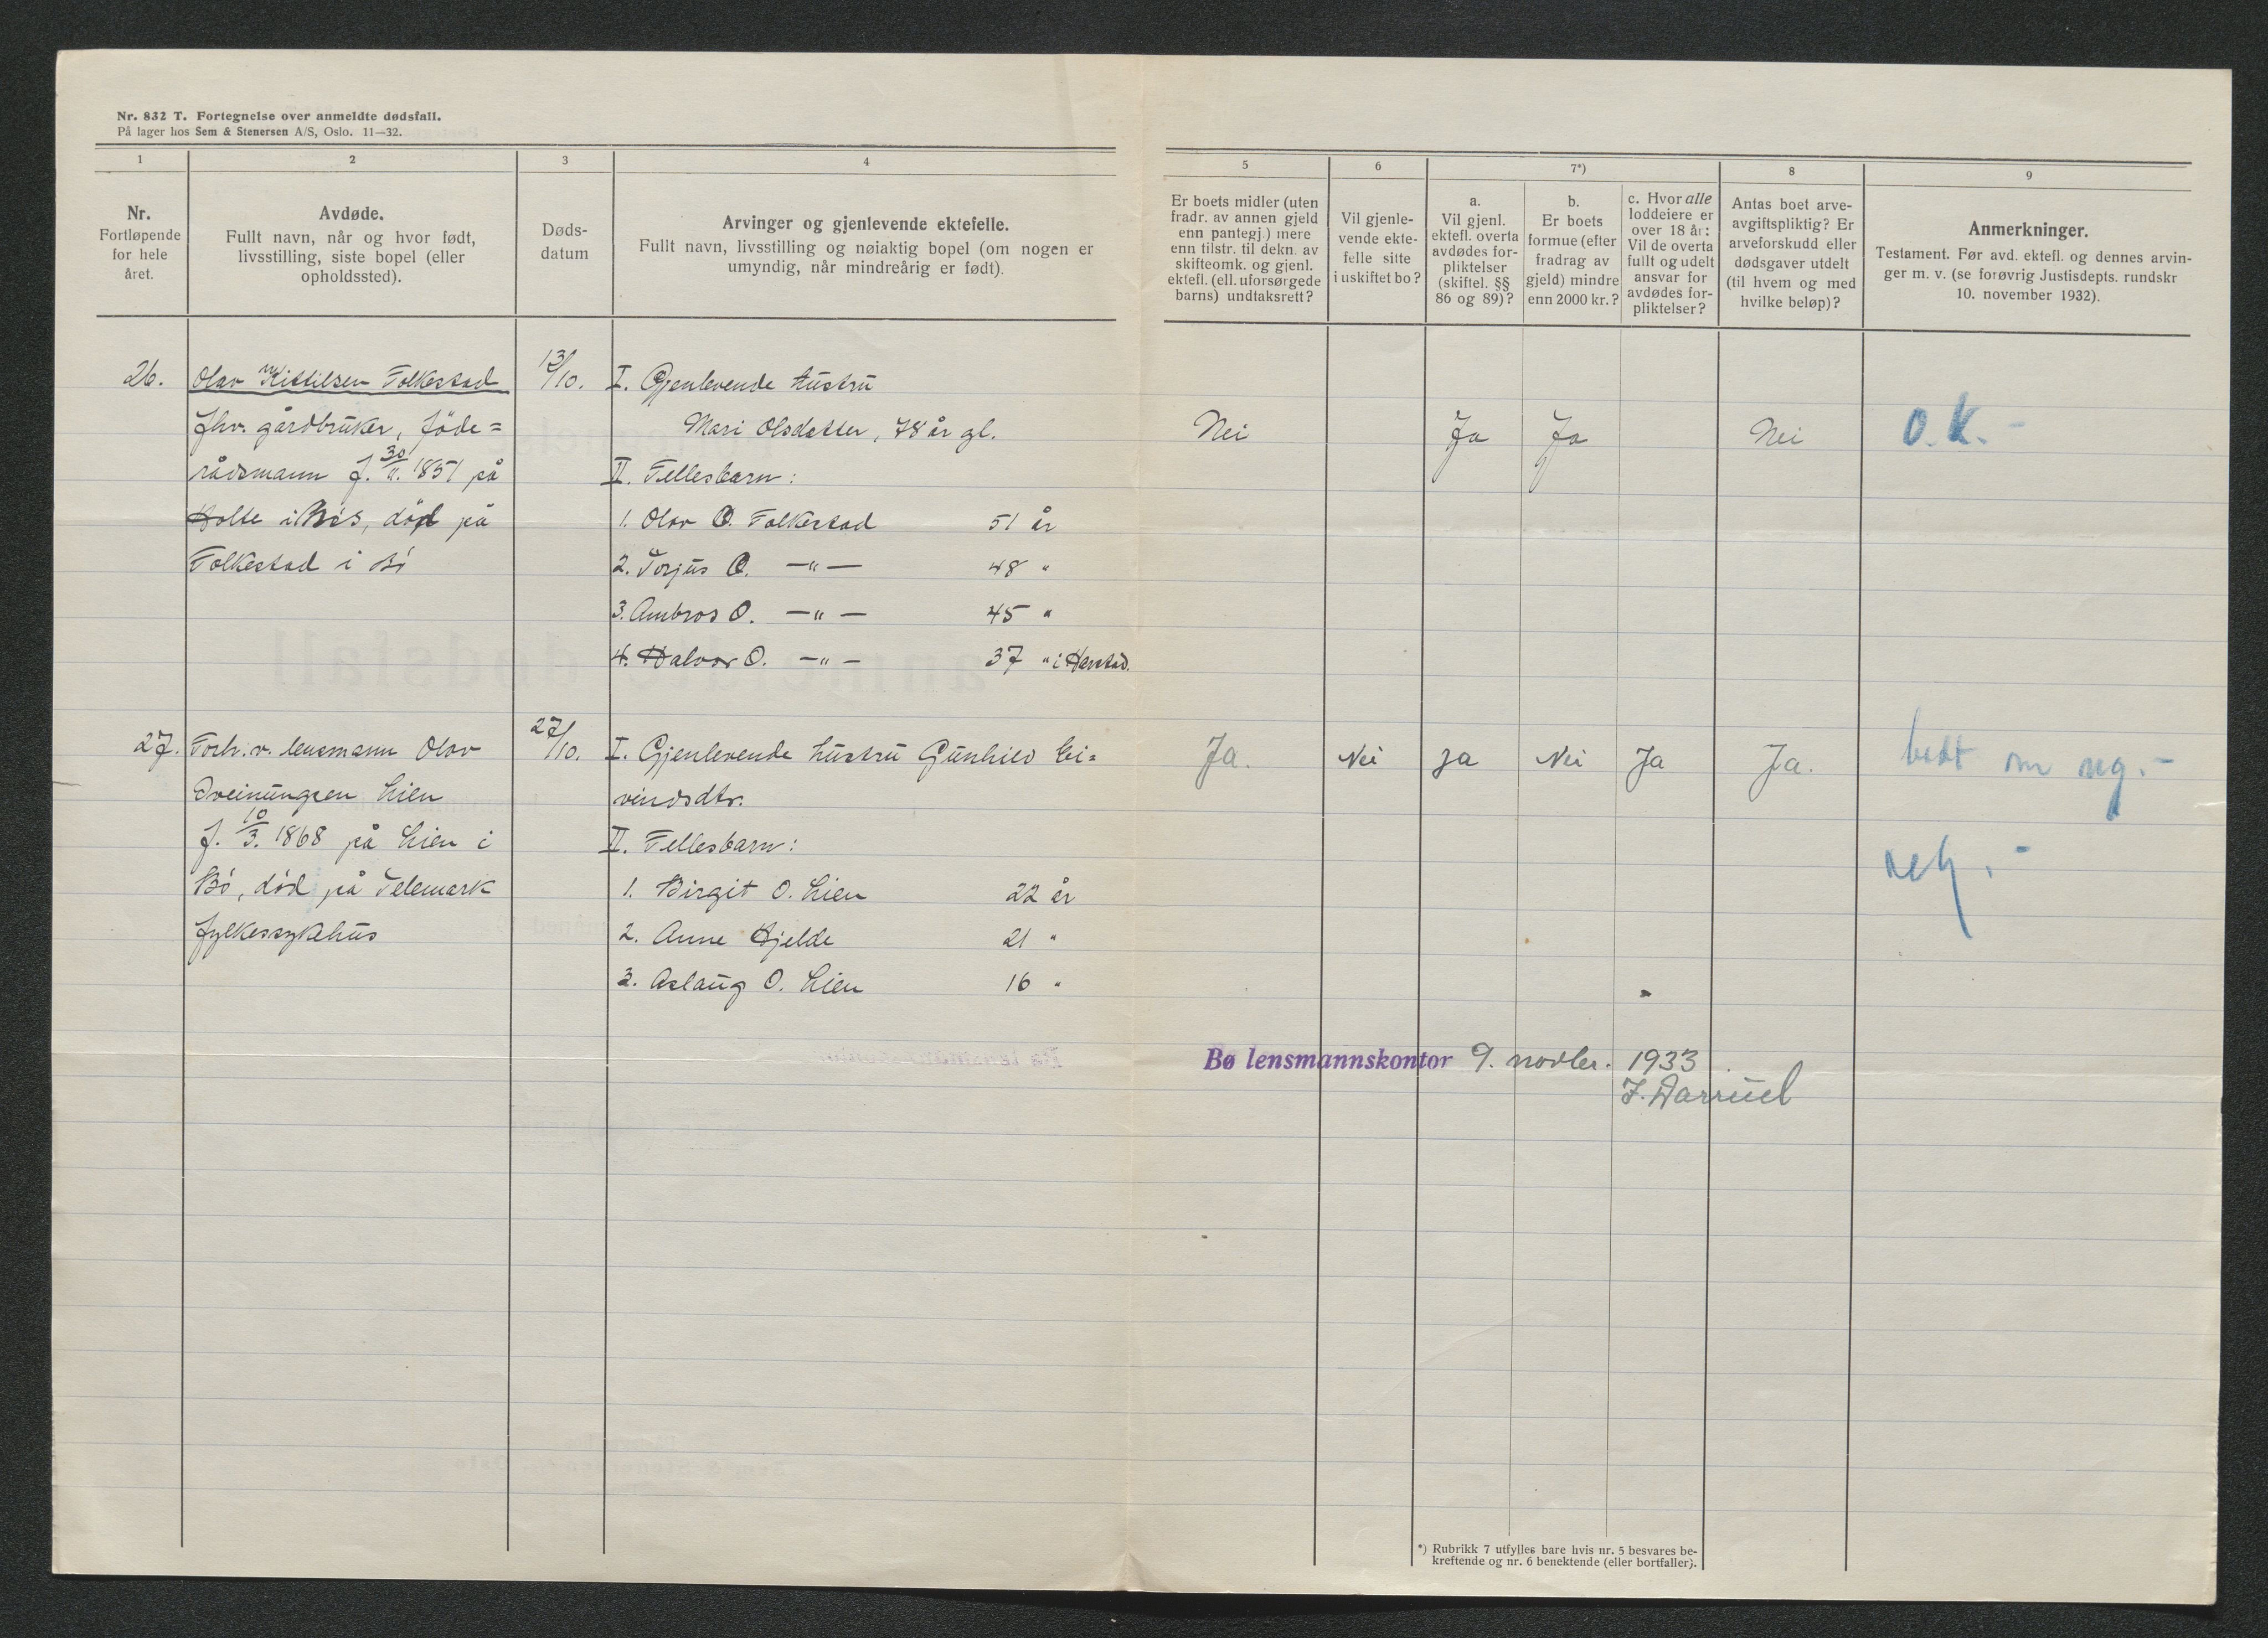 Nr. 832 T. Fortegnelse over anmeldte dødsfall.
På lager hos Sem & Stenersen A/S, Oslo. 11—32.
1
2
3
4
5
6
7*)
8
9
Nr.
Fortløpende
for hele
året.
Avdøde.
Fullt navn, når og hvor født,
livsstilling, siste bopel (eller
opholdssted).
Døds-
datum
Arvinger og gjenlevende ektefelle.
Fullt navn, livsstilling og nøiaktig bopel (om nogen er
umyndig, når mindreårig er født).
Er boets midler (uten
fradr. av annen gjeld
enn pantegj.) mere
enn tilstr. til dekn. av
skifteomk. og gjenl.
ektefl. (ell. uforsørgede
barns) undtaksrett?
Vil gjenle-
vende ekte-
felle sitte
i uskiftet bo?
a.
Vil gjenl.
ektefl. overta
avdødes for-
pliktelser
(skiftel. §§
86 og 89)?
b.
Er boets
formue (efter
fradrag av
gjeld) mindre
enn 2000 kr.?
c. Hvor alle
loddeiere er
over 18 år:
Vil de overta
fullt og udelt
ansvar for
avdødes for-
pliktelser?
Antas boet arve-
avgiftspliktig? Er
arveforskudd eller
dødsgaver utdelt
(til hvem og med
hvilke beløp)?
Anmerkninger.
Testament. Før avd. ektefl. og dennes arvin-
ger m. v. (se forøvrig Justisdepts. rundskr
10. november 1932).
26.
Olav Kittilsen Folkestad
fhv. gårdbruker, föde=
rådsmann f. 30/11. 1851 på
Holte i Bö, död på
Folkestad i Bö
13/10.
I. Gjenlevende hustru
Mari Olsdatter, 78 år gl.
II. Fellesbarn:
1. Olav O. Folkestad 51 år
2. Torjus O. —"— 48 "
3. Ambros O. —"— 45 "
4. Halvor O. —"— 37 " i Harstad.
Nei
Ja
Ja
Nei
O.K.-
27.
Forh.v. lensmann Olav
Sveinungsen Lien
f. 10/3. 1868 på Lien i
Bö, död på Telemark
fylkessykehus
27/10.
I. Gjenlevende hustru Gunhild Ei=
vindsdtr.
II. Fellesbarn:
1. Birgit O. Lien 22 år
2. Anne Hjelde 21 "
3. Aslaug O. Lien 16 "
Ja.
Nei
Ja
Nei
Ja
Ja.
bedt om
Bø lensmannskontor 9. novbr. 1933
*) Rubrikk 7 utfylles bare hvis nr. 5 besvares be-
kreftende og nr. 6 benektende (eller bortfaller).